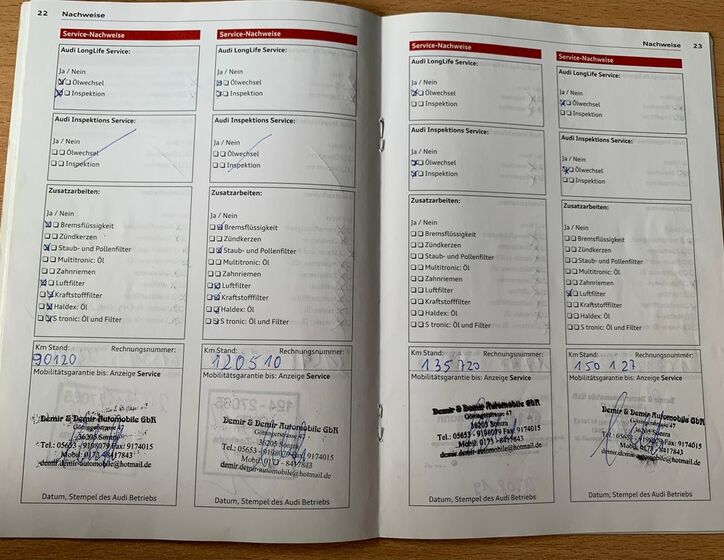 22 Nachweise
Service-Nachweise
Audi LongLife Service:
Ja / Nein
Ölwechsel
Inspektion
Audi Inspektions Service:
Ja / Nein
Ölwechsel
Inspektion
Zusatzarbeiten:
Ja / Nein
Bremsflüssigkeit
Zündkerzen
Staub- und Pollenfilter
Multitronic: Öl
Zahnriemen
Luftfilter
Kraftstofffilter
Haldex: Öl
S tronic: Öl und Filter
Km Stand: Rechnungsnummer:
90120
Mobilitätsgarantie bis: Anzeige Service
Demir & Demir Automobile GbR
Göttingerstrasse 47
36205 Sontra
Tel.: 05653 - 9198079 Fax: 9174015
Mobil: 0173 - 8417843
demir.demir-automobile@hotmail.de
Datum, Stempel des Audi Betriebs
Service-Nachweise
Audi LongLife Service:
Ja / Nein
Ölwechsel
Inspektion
Audi Inspektions Service:
Ja / Nein
Ölwechsel
Inspektion
Zusatzarbeiten:
Ja / Nein
Bremsflüssigkeit
Zündkerzen
Staub- und Pollenfilter
Multitronic: Öl
Zahnriemen
Luftfilter
Kraftstofffilter
Haldex: Öl
S tronic: Öl und Filter
Km Stand: Rechnungsnummer:
120510
Mobilitätsgarantie bis: Anzeige Service
Demir & Demir Automobile GbR
Göttingerstrasse 47
36205 Sontra
Tel.: 05653 - 9198079 Fax: 9174015
Mobil: 0173 - 8417843
demir.demir-automobile@hotmail.de
Datum, Stempel des Audi Betriebs
Nachweise 23
Service-Nachweise
Audi LongLife Service:
Ja / Nein
Ölwechsel
Inspektion
Audi Inspektions Service:
Ja / Nein
Ölwechsel
Inspektion
Zusatzarbeiten:
Ja / Nein
Bremsflüssigkeit
Zündkerzen
Staub- und Pollenfilter
Multitronic: Öl
Zahnriemen
Luftfilter
Kraftstofffilter
Haldex: Öl
S tronic: Öl und Filter
Km Stand: Rechnungsnummer:
135720
Mobilitätsgarantie bis: Anzeige Service
Demir & Demir Automobile GbR
Göttingerstrasse 47
36205 Sontra
Tel.: 05653 - 9198079 Fax: 9174015
Mobil: 0173 - 8417843
demir.demir-automobile@hotmail.de
Datum, Stempel des Audi Betriebs
Service-Nachweise
Audi LongLife Service:
Ja / Nein
Ölwechsel
Inspektion
Audi Inspektions Service:
Ja / Nein
Ölwechsel
Inspektion
Zusatzarbeiten:
Ja / Nein
Bremsflüssigkeit
Zündkerzen
Staub- und Pollenfilter
Multitronic: Öl
Zahnriemen
Luftfilter
Kraftstofffilter
Haldex: Öl
S tronic: Öl und Filter
Km Stand: Rechnungsnummer:
150 127
Mobilitätsgarantie bis: Anzeige Service
Demir & Demir Automobile GbR
Göttingerstrasse 47
36205 Sontra
Tel.: 05653 - 9198079 Fax: 9174015
Mobil: 0173 - 8417843
demir.demir-automobile@hotmail.de
Datum, Stempel des Audi Betriebs